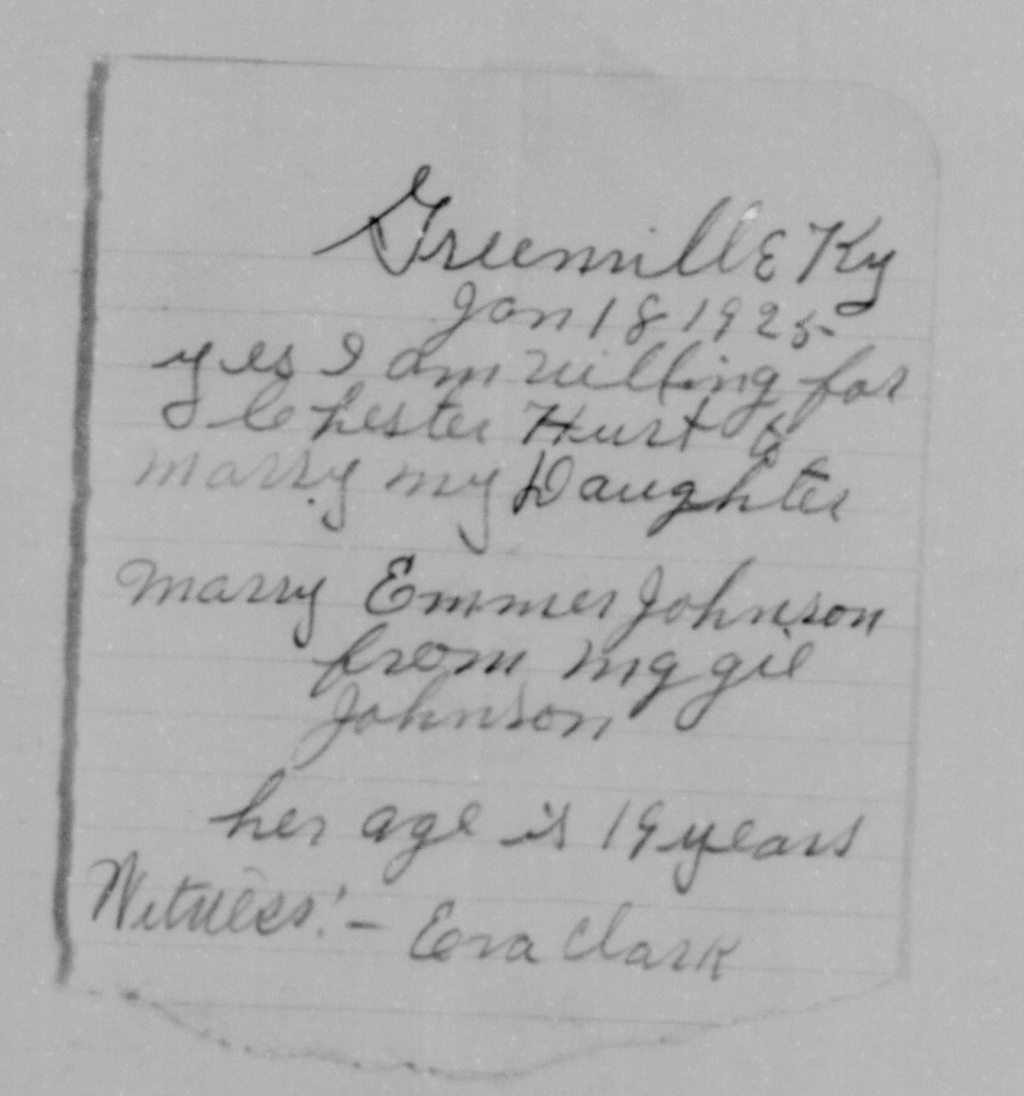 Greenville Ky
Jan 18 1925
yes I am willing for
Chester Hurt to
marry my Daughter
marry Emmer Johnson
from Maggie
Johnson
her age is 19 years
Witness:- Eva Clark